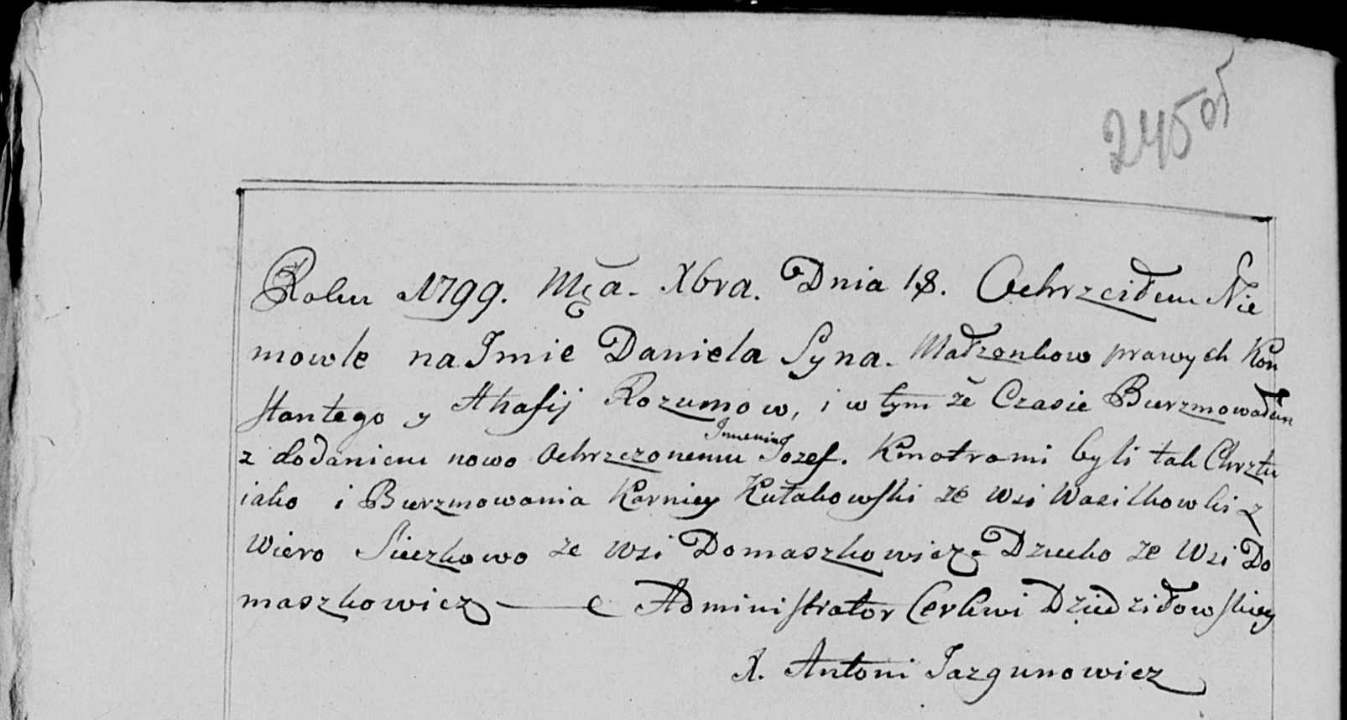 245об
Roku 1799. Mca. Xbra. Dnia 18. Ochrzciłem Nie
mowle na Imie Daniela Syna. Małzonkow prawych Kon
stantego y Ahafij Rozumow, i w tym że Czasie Burzmowałem
z dodaniem nowo Ochrzczonemu Imienia Jozef. Kmotrami byli tak Chrztu
iako i Burzmowania Karniey Kułakowski ze wsi Wasilkowki z
Wiero Suczkowo ze wsi Domaszkowicz Dziecko ze Wsi Do
maszkowicz Administrator Cerkwi Dziedziłowskiey
X. Antoni Jazgunowicz